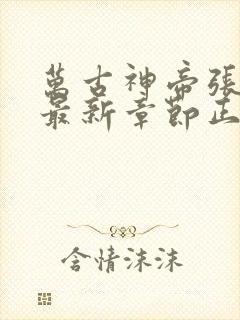 萬古神帝張
最新章節正
含情沫沫